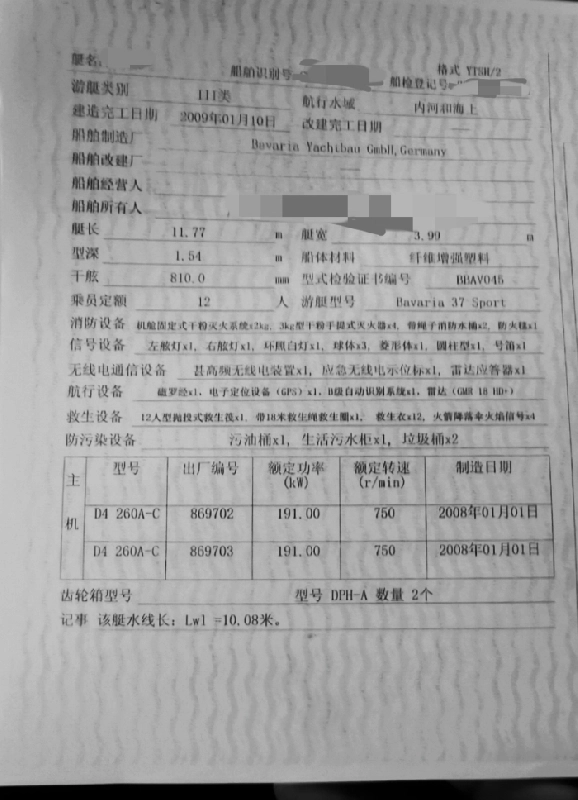 艇名:
船舶识别号
格式 YTSH/2
船检登记号
游艇类别 III类 航行水域 内河和海上
建造完工日期 2009年01月10日 改建完工日期
船舶制造厂 Bavaria Yachtbau GmbH,Germany
船舶改建厂
船舶经营人
船舶所有人
艇长 11.77 m 艇宽 3.99 m
型深 1.54 m 船体材料 纤维增强塑料
干舷 810.0 mm 型式检验证书编号 BBAV045
乘员定额 12 人 游艇型号 Bavaria 37 Sport
消防设备 机舱固定式干粉灭火系统x2kg, 3kg型干粉手提式灭火器x4, 带绳子消防水桶x2, 防火毯x1
信号设备 左舷灯x1, 右舷灯x1, 环照白灯x1, 球体x3, 菱形体x1, 圆柱型x1, 号笛x1
无线电通信设备 甚高频无线电装置x1, 应急无线电示位标x1, 雷达应答器x1
航行设备 磁罗经x1, 电子定位设备(GPS)x1, B级自动识别系统x1, 雷达(GMR 18 HD+)
救生设备 12人型抛投式救生筏x1, 带18米救生绳救生圈x1, 救生衣x12, 火箭降落伞火焰信号x4
防污染设备 污油桶x1, 生活污水柜x1, 垃圾桶x2
主机 型号 出厂编号 额定功率(kW) 额定转速(r/min) 制造日期
D4 260A-C 869702 191.00 750 2008年01月01日
D4 260A-C 869703 191.00 750 2008年01月01日
齿轮箱型号 型号 DPH-A 数量 2个
记事 该艇水线长: Lwl =10.08米。